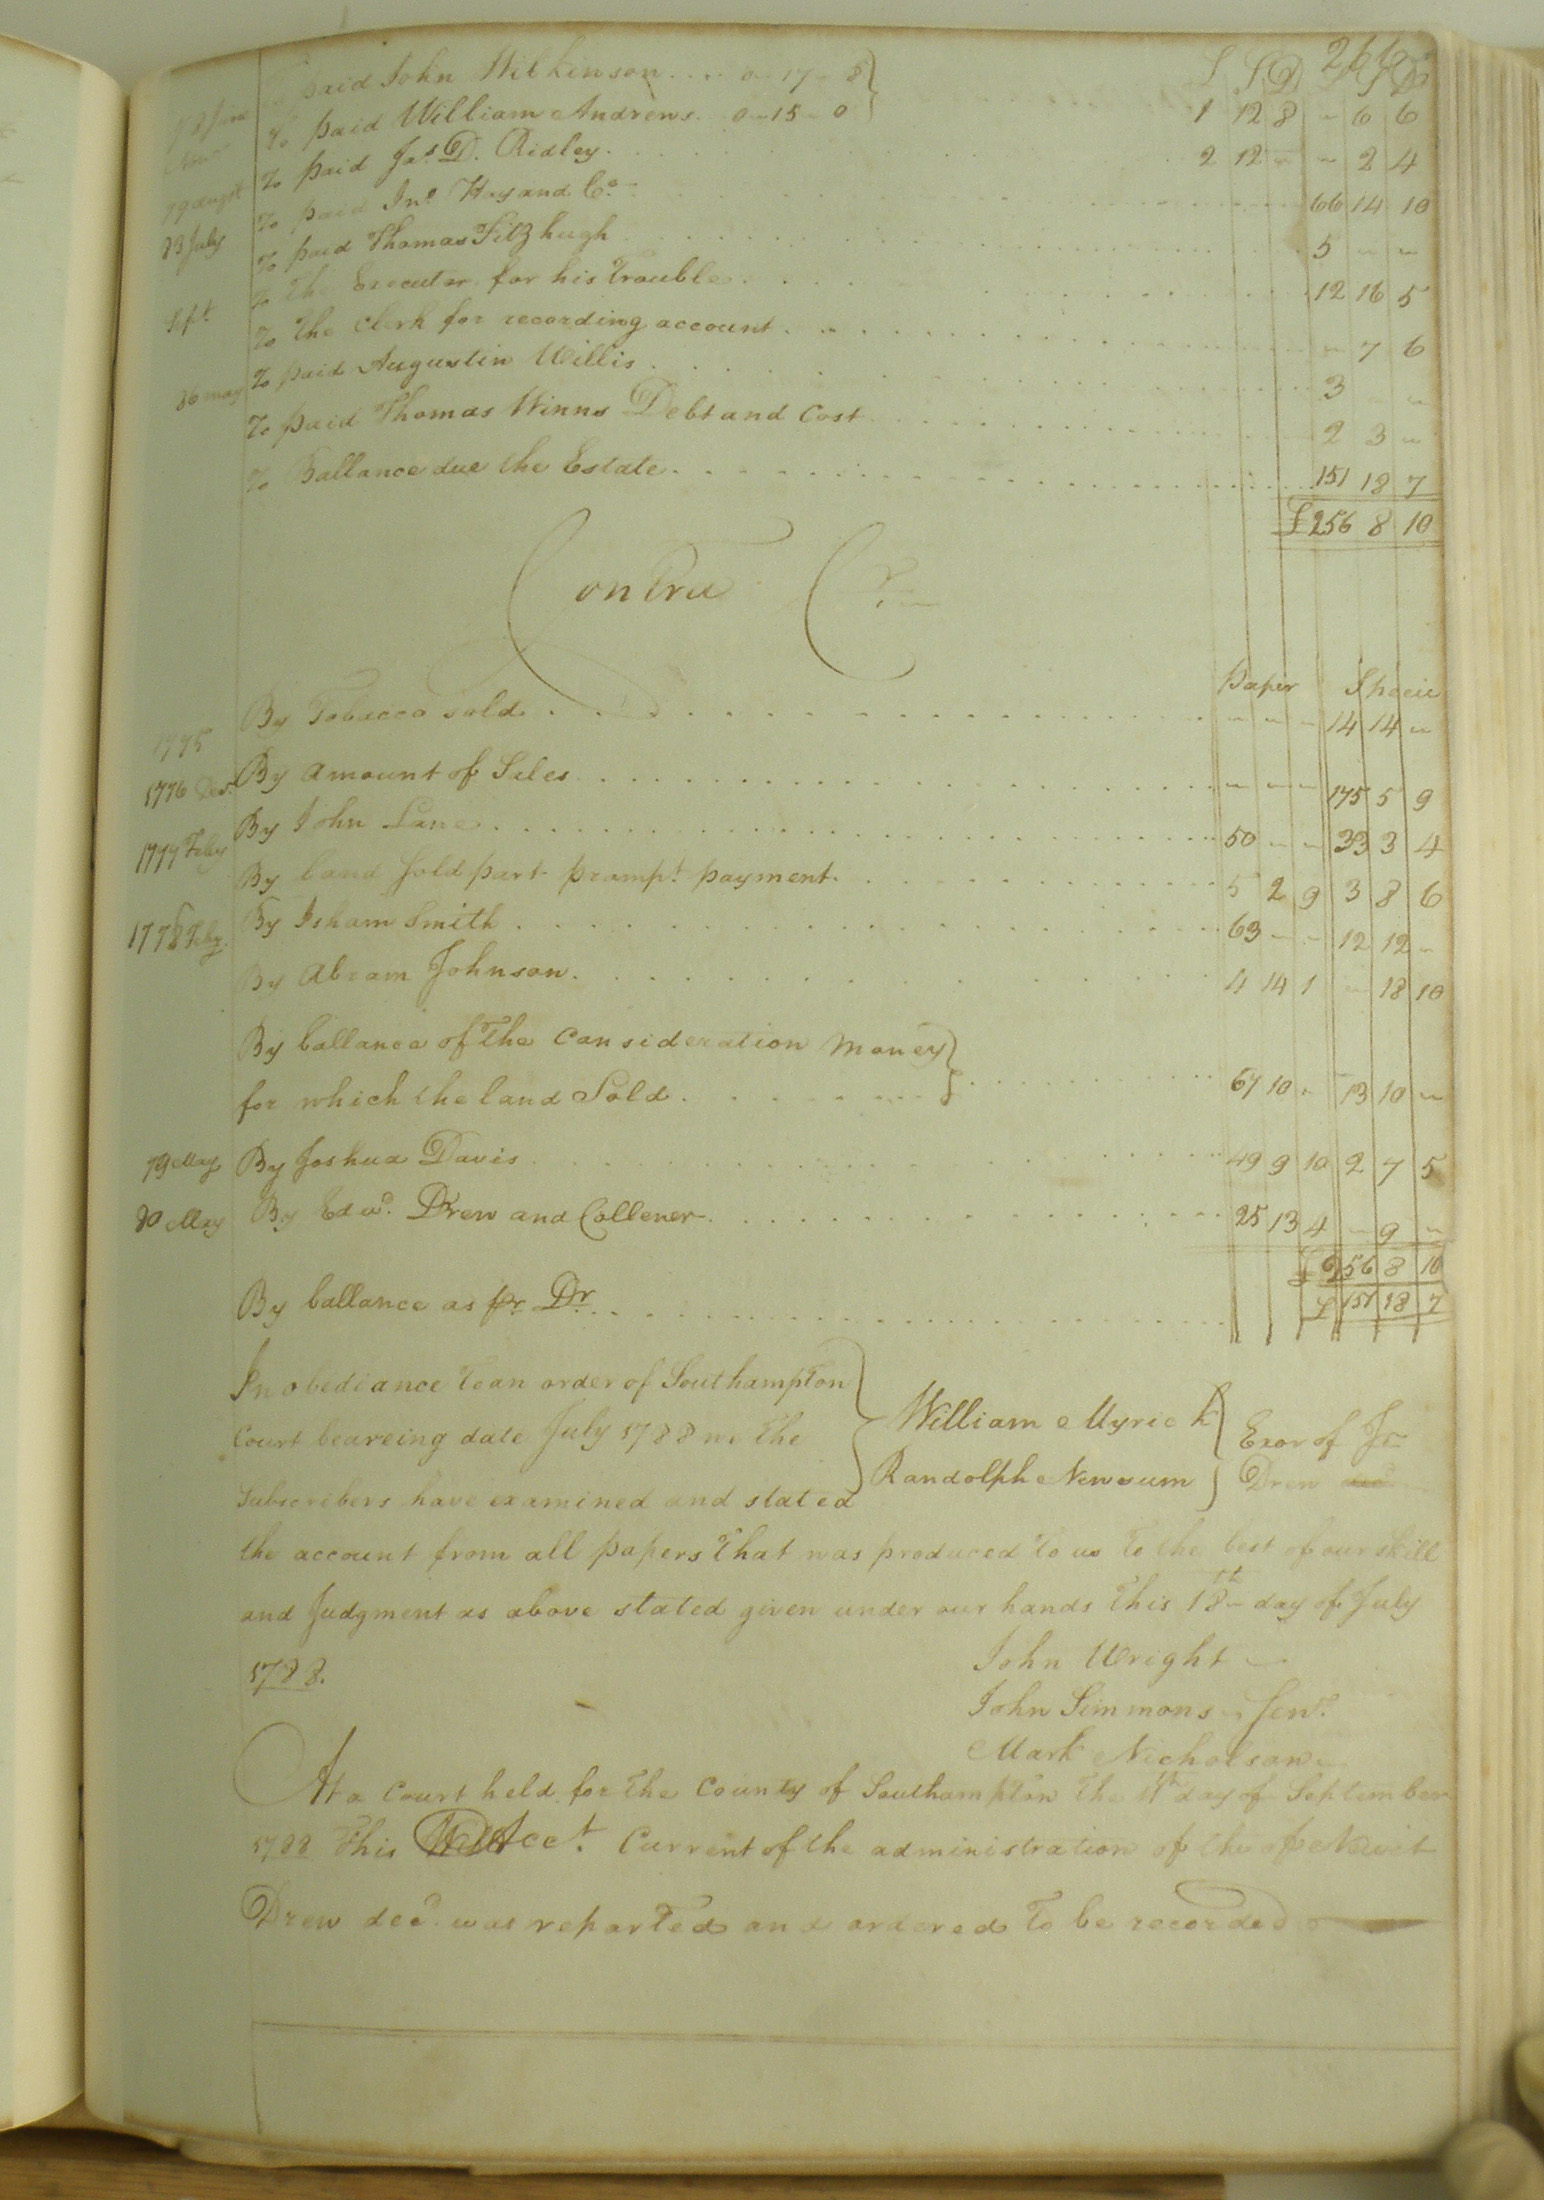 266
£ S D £ S D
paid John Wilkinson.... 0-17-8
78 June To paid William Andrews. 0-15-0 } 1 12 8 - 6 6
To paid Jas. D. Ridley. 2 12 - - 2 4
79 augst To paid Jno. Hay and Co. 66 14 10
83 July To paid Thomas Fitzhugh 5 - -
To The Executor for his Trouble 12 16 5
Sept. To The Clerk for recording account - 7 6
86 may To paid Augustin Willis 3 - -
To paid Thomas Winns Debt and Cost 2 3 -
To Ballance due the Estate 151 18 7
£256 8 10
Contra Cr.
Paper Specie
1775 By Tobacco sold - - - 14 14 -
1776 Decr. By Amount of Sales - - - 175 5 9
1777 Feby By John Lane 50 - - 33 3 4
By land Sold part prompt. payment. 5 2 9 3 8 6
1778 Feby. By Isham Smith 63 - - 12 12 -
By Abram Johnson. 4 14 1 - 18 10
By ballance of The Consideration Money }
for which the land Sold. 67 10 - 13 10 -
79 May By Joshua Davis 49 9 10 2 7 5
80 May By Edwd. Drew and Collener. 25 13 4 - 9 -
£256 8 10
By ballance as pr. Dr. £151 18 7
In obediance to an order of Southampton
Court beareing date July 1788 we The
Subscribers have examined and stated
William Myrick }
Randolph Newsum }
Exor of Jr
Drew
the account from all papers That was produced to us To the best of our skill
and Judgment as above stated given under our hands This 18th day of July
1788.
John Wright
John Simmons Senr.
Mark Nicholson
At a Court held for The County of Southampton The 11th day of September
1788 This Acct. Current of the administration of the of Newit
Drew decd. was reported and ordered To be recorded